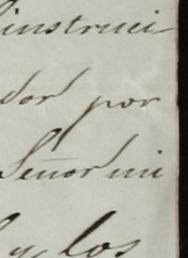 instrucci-
dor por
Señor mi
y los